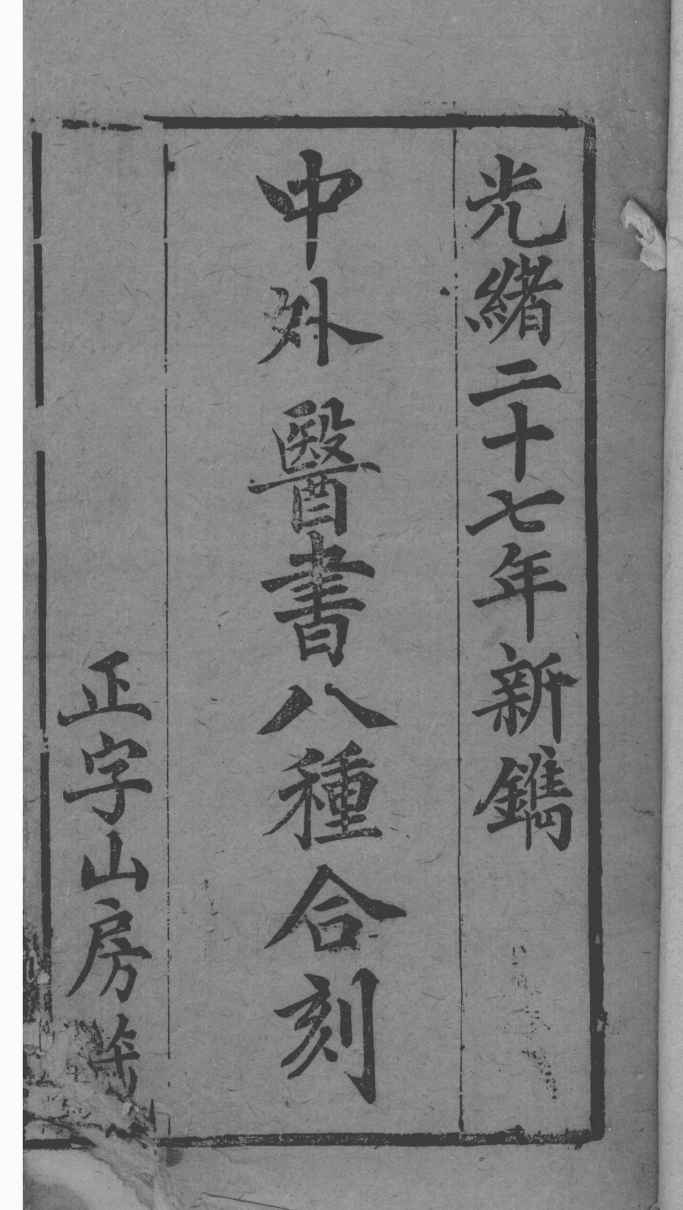 光緒二十七年新鐫
中外醫書八種合刻
正字山房